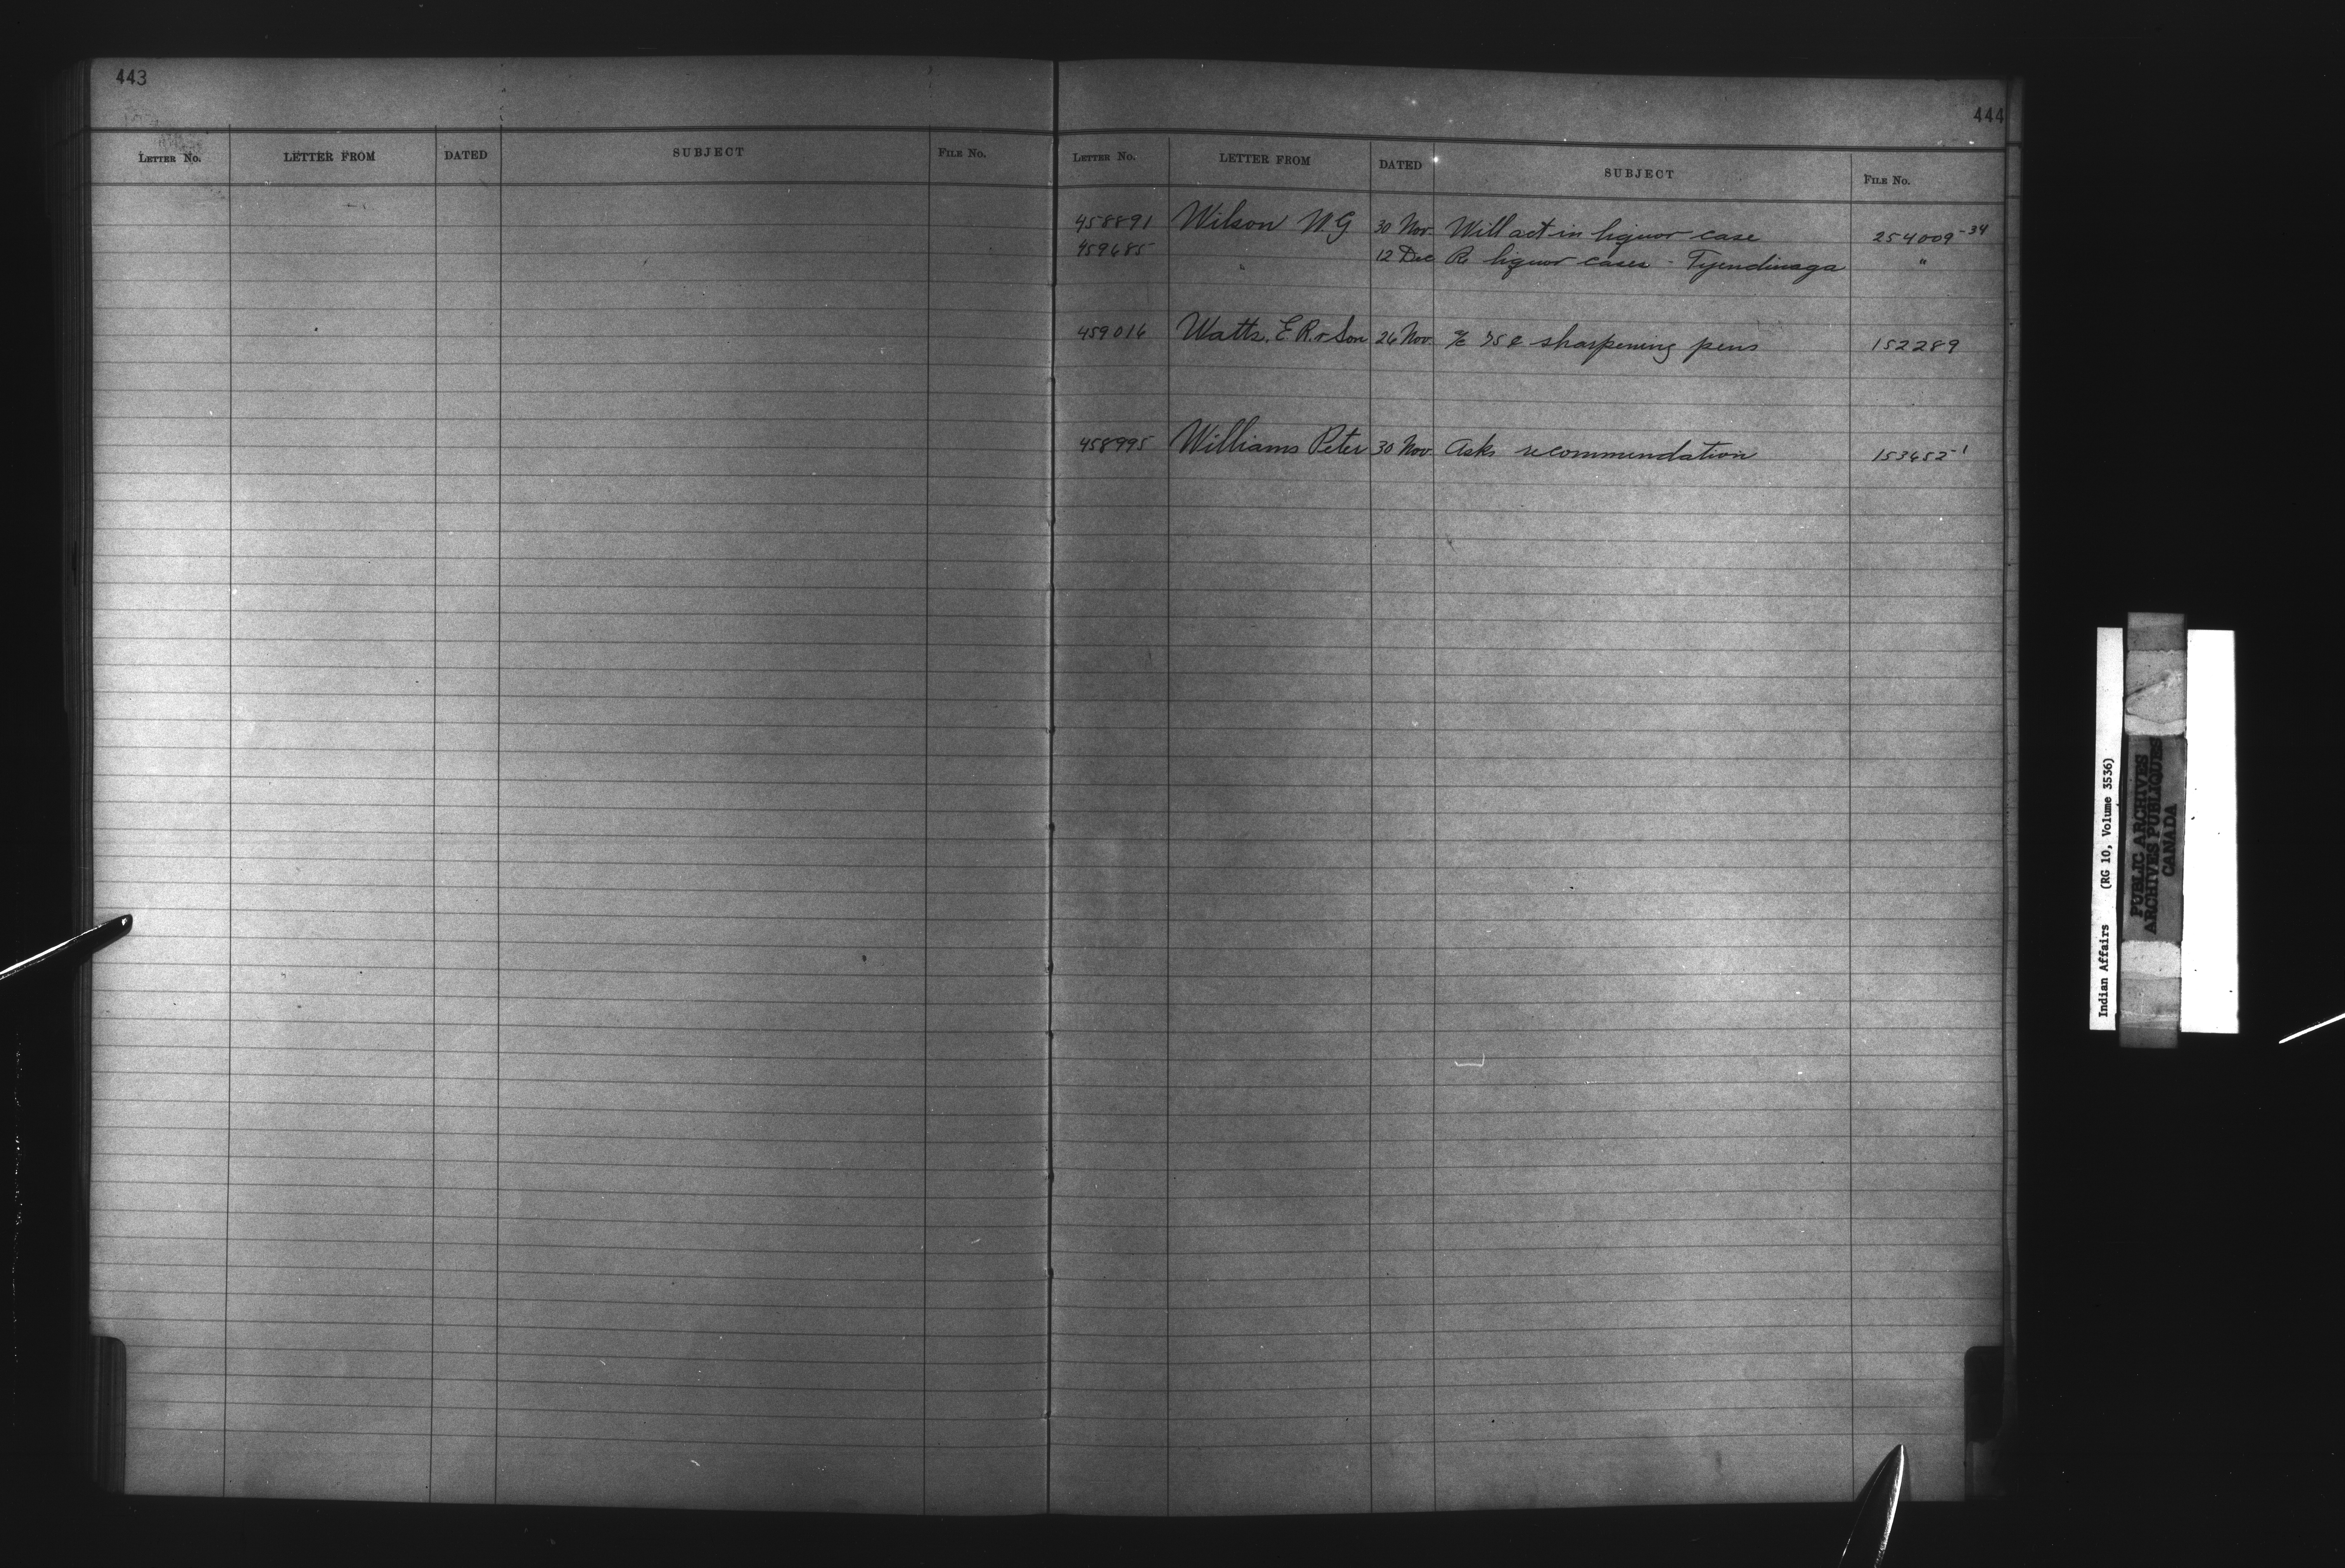 443
LETTER No. LETTER FROM DATED SUBJECT FILE No.
444
LETTER No. LETTER FROM DATED SUBJECT FILE No.
458891 Wilson W.G 30 Nov. Will act in liquor case 254009-34
459685 " 12 Dec Re liquor cases - Tyendinaga "
459016 Watts, E.R. & Son 26 Nov. a/c 75¢ sharpening pens 152289
458995 Williams Peter 30 Nov. Asks recommendation 153452-1
Indian Affairs (RG 10, Volume 3536)
PUBLIC ARCHIVES
ARCHIVES PUBLIQUES
CANADA